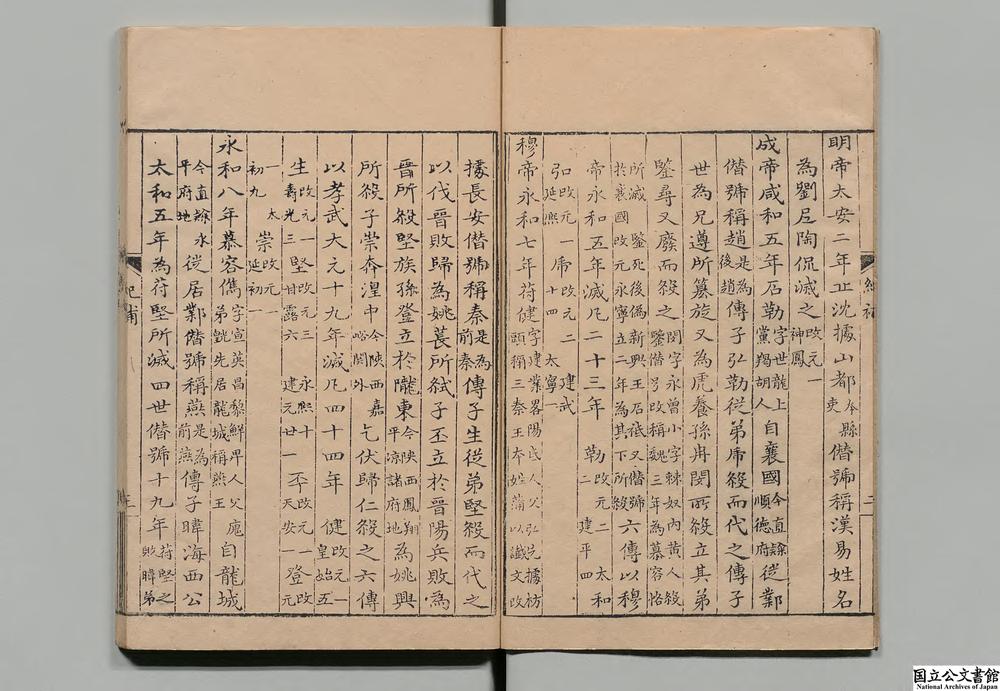 明帝太安二年丘沈據山都今縣吏僭號稱漢易姓名
為劉尼陶侃滅之改元一神鳳
成帝咸和五年石勒字世龍上黨羯胡人自襄國今直隸順德府徙鄴
僭號稱趙是為後趙傳子弘勒從弟虎殺而代之傳子
世為兄遵所簒旋又為虎養孫冉閔所殺立其弟
鑒尋又廢而殺之閔字永曾小字棘奴內黃人殺鑒僭号改稱魏三年為慕容恪
所滅鑒死後偽新興王石祗又僭號於襄國改元永寧立二年為其下所殺六傳以穆
帝永和五年滅凡二十三年勒改元二太和二建平四
弘改元一延熙虎改元二建武十四太寧一
穆帝永和七年苻健字建業畧陽氐人父弘先據枋頭稱三秦王本姓蒲以讖文改
據長安僭號稱秦是為前秦傳子生從弟堅殺而代之
以伐晉敗歸為姚萇所弒子丕立於晉陽兵敗為
晉所殺堅族孫登立於隴東今陝西鳳翔平涼諸府地為姚興
所殺子崇奔湟中今陝西嘉峪關外乞伏歸仁殺之六傳
以孝武大元十九年滅凡四十四年健改元一皇始五
生改元一壽光三堅改元三永熙十甘露六建元廿一丕改元一天安一登改元
一太初九崇改元一延初一
永和八年慕容儁字宣英昌黎鮮卑人父廆弟皝先居龍城稱燕王自龍城
今直隸永平府地徙居鄴僭號稱燕是為前燕傳子暐海西公
太和五年為苻堅所滅四世僭號十九年苻堅之敗暐弟
国立公文書館
National Archives of Japan